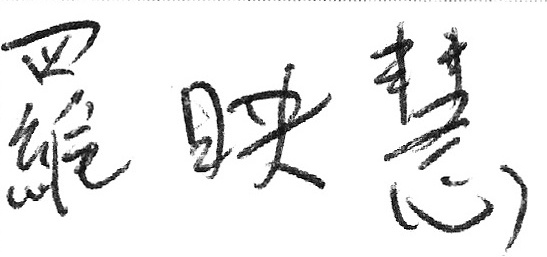 羅映慧